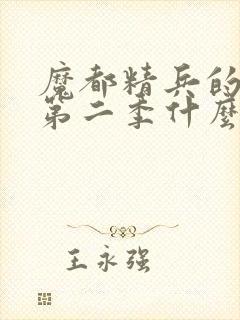 魔都精兵的
第二季什麼
王永强